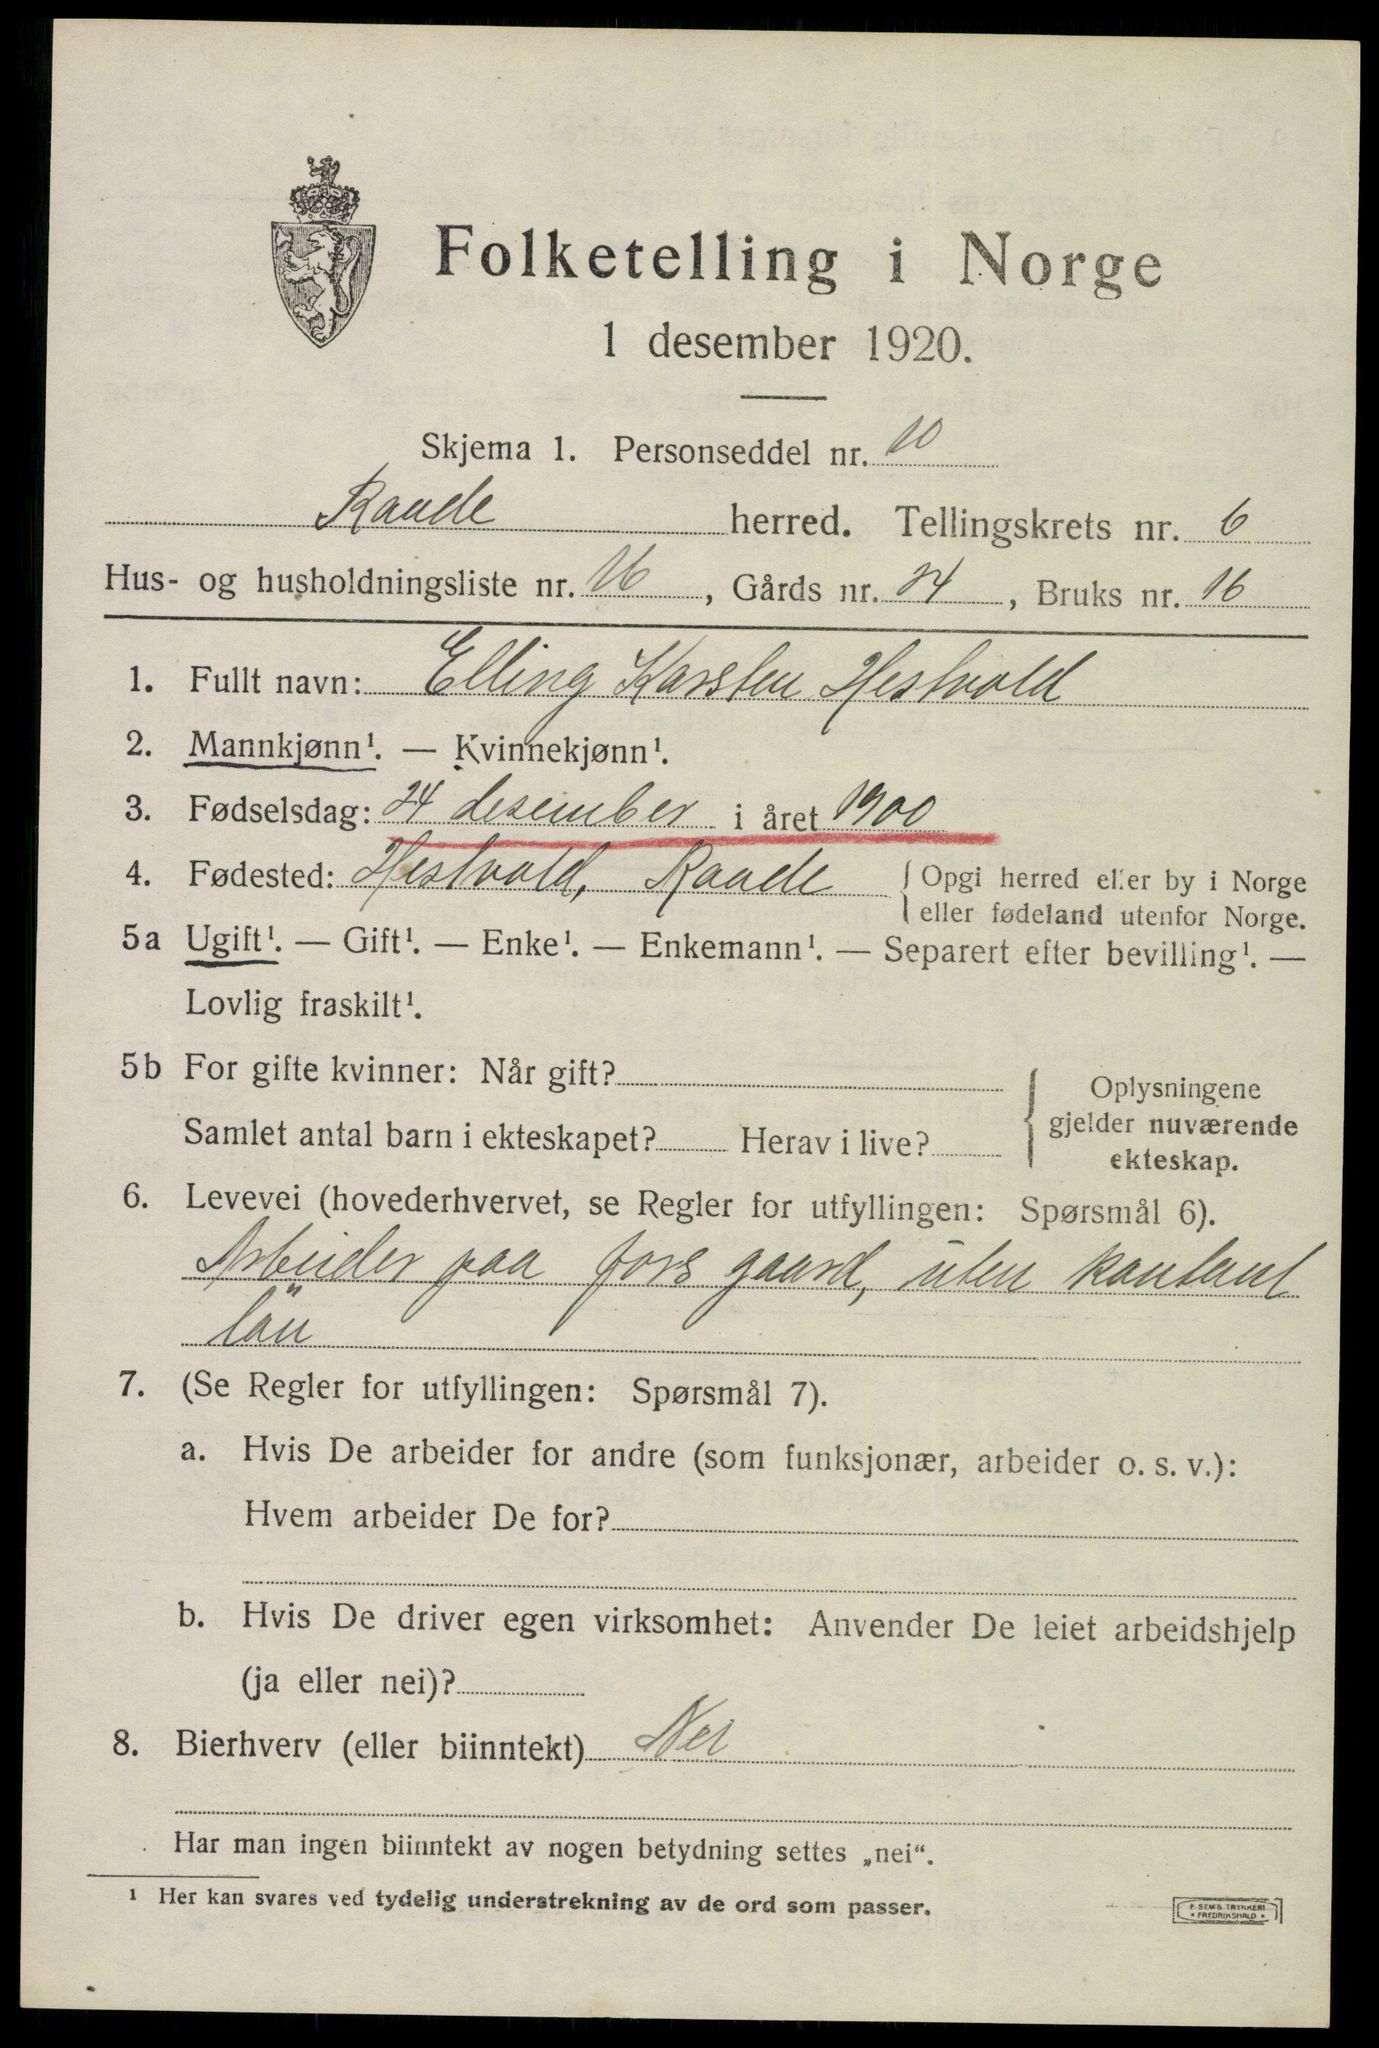 Folketelling i Norge
1 desember 1920.
Skjema 1. Personseddel nr. 10
Raade herred. Tellingskrets nr. 6
Hus- og husholdningsliste nr. 16, Gårds nr. 24, Bruks nr. 16
1. Fullt navn: Elling Karsten Hestvold
2. Mannkjønn¹. — Kvinnekjønn¹.
3. Fødselsdag: 24 desember i året 1900
4. Fødested: Hestvold, Raade { Opgi herred eller by i Norge
eller fødeland utenfor Norge.
5a Ugift¹. — Gift¹. — Enke¹. — Enkemann¹. — Separert efter bevilling¹. —
Lovlig fraskilt¹.
5b For gifte kvinner: Når gift?
Samlet antal barn i ekteskapet? Herav i live?
Oplysningene
gjelder nuværende
ekteskap.
6. Levevei (hovederhvervet, se Regler for utfyllingen: Spørsmål 6).
Arbeider paa fars gaard, uten kontant
lön
7. (Se Regler for utfyllingen: Spørsmål 7).
a. Hvis De arbeider for andre (som funksjonær, arbeider o. s. v.):
Hvem arbeider De for?
b. Hvis De driver egen virksomhet: Anvender De leiet arbeidshjelp
(ja eller nei)?
8. Bierhverv (eller biinntekt) Nei
Har man ingen biinntekt av nogen betydning settes „nei“.
¹ Her kan svares ved tydelig understrekning av de ord som passer.
F. SEM'S TRYKKERI
• FREDRIKSHALD •